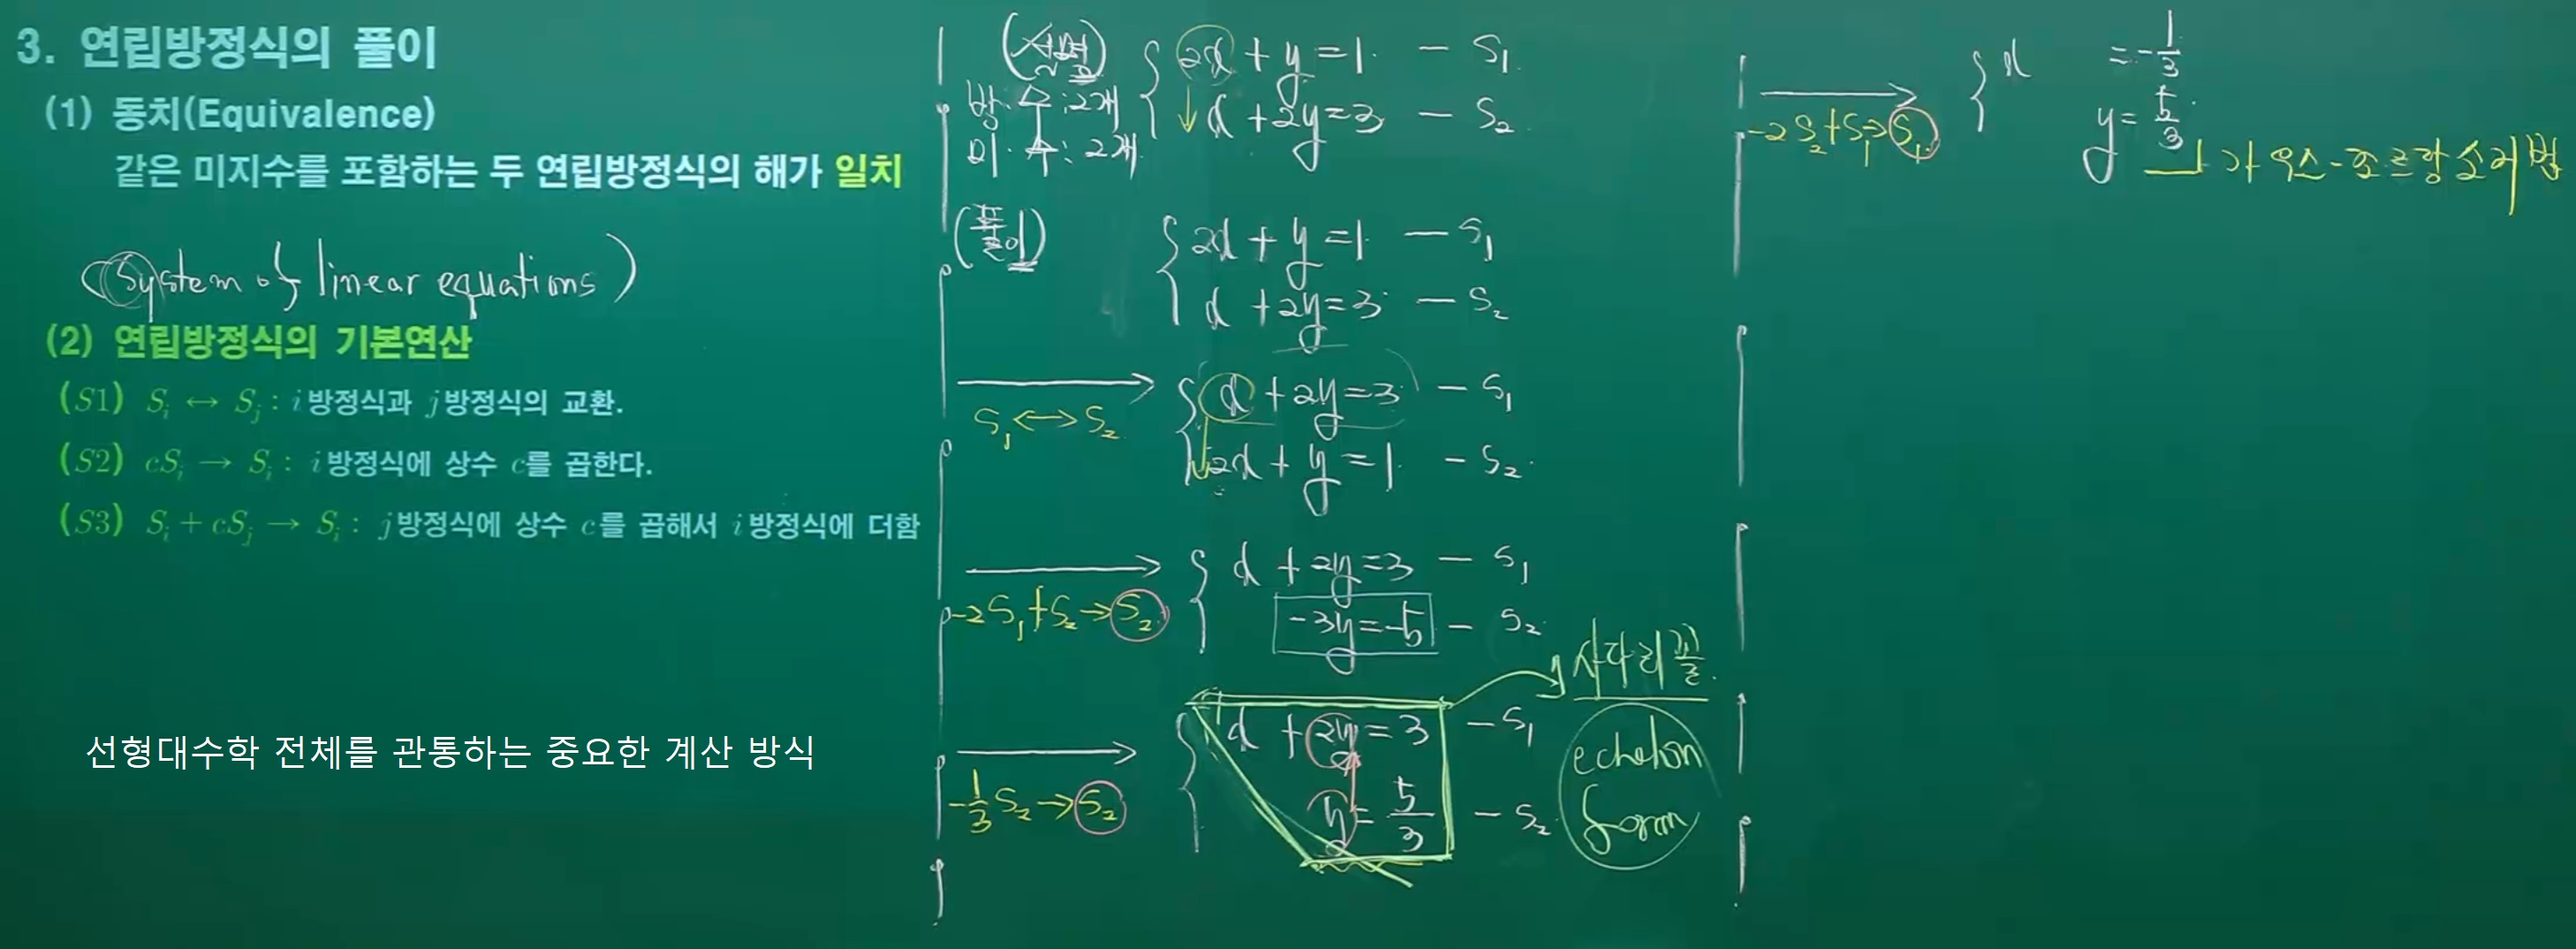 3. 연립방정식의 풀이
(1) 동치(Equivalence)
같은 미지수를 포함하는 두 연립방정식의 해가 일치
(System of linear equations)
(2) 연립방정식의 기본연산
(S1) Si ↔ Sj : i방정식과 j방정식의 교환.
(S2) cSi → Si : i방정식에 상수 c를 곱한다.
(S3) Si + cSj → Si : j방정식에 상수 c를 곱해서 i방정식에 더함
선형대수학 전체를 관통하는 중요한 계산 방식
방·수:2개
미·수:2개
2x + y = 1 - S1
x + 2y = 3 - S2
(풀이)
2x + y = 1 - S1
x + 2y = 3 - S2
S1 ↔ S2
x + 2y = 3 - S1
2x + y = 1 - S2
-2S1 + S2 → S2
x + 2y = 3 - S1
-3y = -5 - S2
-1/3 S2 → S2
x + 2y = 3 - S1
y = 5/3 - S2
사다리꼴
echelon
form
-2S2 + S1 → S1
x = -1/3
y = 5/3
가우스-조르당 소거법